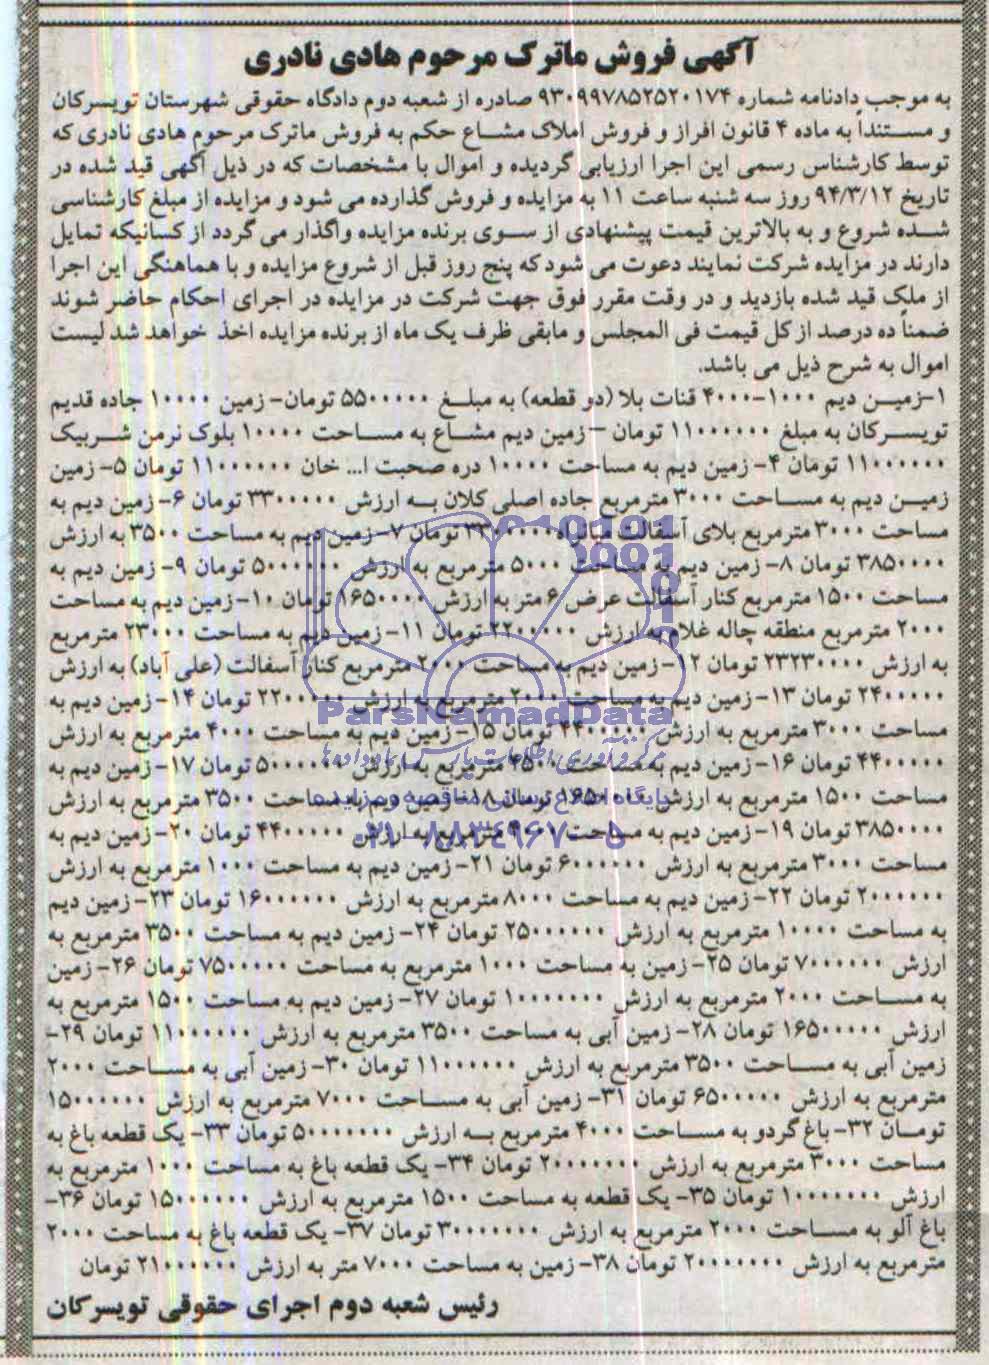 آگهی فروش ماترک مرحوم هادی نادری
به موجب دادنامه شماره ۹۳۰۹۹۷۸۵۲۵۲۰۱۷۴ صادره از شعبه دوم دادگاه حقوقی شهرستان تویسرکان
و مستنداً به ماده ۴ قانون افراز و فروش املاک مشاع حکم به فروش ماترک مرحوم هادی نادری که
توسط کارشناس رسمی این اجرا ارزیابی گردیده و اموال با مشخصات که در ذیل آگهی قید شده در
تاریخ ۹۴/۳/۱۲ روز سه شنبه ساعت ۱۱ به مزایده و فروش گذارده می شود و مزایده از مبلغ کارشناسی
شده شروع و به بالاترین قیمت پیشنهادی از سوی برنده مزایده واگذار می گردد از کسانیکه تمایل
دارند در مزایده شرکت نمایند دعوت می شود که پنج روز قبل از شروع مزایده و با هماهنگی این اجرا
از ملک قید شده بازدید و در وقت مقرر فوق جهت شرکت در مزایده در اجرای احکام حاضر شوند
ضمناً ده درصد از کل قیمت فی المجلس و مابقی ظرف یک ماه از برنده مزایده اخذ خواهد شد لیست
اموال به شرح ذیل می باشد.
۱-زمین دیم ۱۰۰۰-۴۰۰۰ قنات بلا (دو قطعه) به مبلغ ۵۵۰۰۰۰۰ تومان- زمین ۱۰۰۰۰ جاده قدیم
تویسرکان به مبلغ ۱۱۰۰۰۰۰۰ تومان -زمین دیم مشاع به مساحت ۱۰۰۰۰ بلوک نرمن شریبک
۱۱۰۰۰۰۰۰ تومان ۴- زمین دیم به مساحت ۱۰۰۰۰ دره صحبت ا... خان ۱۱۰۰۰۰۰۰ تومان ۵- زمین
زمین دیم به مساحت ۳۰۰۰ مترمربع جاده اصلی کلان به ارزش ۳۳۰۰۰۰۰ تومان ۶- زمین دیم به
مساحت ۳۰۰۰ مترمربع بلای آسفالت میانراه ۳۳۰۰۰۰۰ تومان ۷- زمین دیم به مساحت ۳۵۰۰ به ارزش
۳۸۵۰۰۰۰ تومان ۸- زمین دیم به مساحت ۵۰۰۰ مترمربع به ارزش ۵۰۰۰۰۰۰ تومان ۹- زمین دیم به
مساحت ۱۵۰۰ مترمربع کنار آسفالت عرض ۶ متر به ارزش ۱۶۵۰۰۰۰ تومان ۱۰- زمین دیم به مساحت
۲۰۰۰ مترمربع منطقه چاله غلام به ارزش ۲۲۰۰۰۰۰ تومان ۱۱- زمین دیم به مساحت ۲۳۰۰۰ مترمربع
به ارزش ۲۳۲۳۰۰۰۰ تومان ۱۲- زمین دیم به مساحت ۲۰۰۰ مترمربع کنار آسفالت (علی آباد) به ارزش
۲۴۰۰۰۰۰ تومان ۱۳- زمین دیم به مساحت ۲۰۰۰ مترمربع به ارزش ۲۲۰۰۰۰۰ تومان ۱۴- زمین دیم به
ParsNamadData
مساحت ۳۰۰۰ مترمربع به ارزش ۴۴۰۰۰۰۰ تومان ۱۵- زمین دیم به مساحت ۴۰۰۰ مترمربع به ارزش
مرکز فرآوری اطلاعات پارس نماد داده ها
۴۴۰۰۰۰۰ تومان ۱۶- زمین دیم به مساحت ۴۵۰۰ مترمربع به ارزش ۵۰۰۰۰۰۰ تومان ۱۷- زمین دیم به
مساحت ۱۵۰۰ مترمربع به ارزش ۱۶۵۰۰۰۰ تومان ۱۸- زمین دیم به مساحت ۳۵۰۰ مترمربع به ارزش
پایگاه اطلاع رسانی مناقصه و مزایده
۳۸۵۰۰۰۰ تومان ۱۹- زمین دیم به مساحت ۴۰۰۰ مترمربع به ارزش ۴۴۰۰۰۰۰ تومان ۲۰- زمین دیم به
۰۲۱-۸۸۳۴۹۶۷۰-۵
مساحت ۳۰۰۰ مترمربع به ارزش ۶۰۰۰۰۰۰ تومان ۲۱- زمین دیم به مساحت ۱۰۰۰ مترمربع به ارزش
۲۰۰۰۰۰۰ تومان ۲۲- زمین دیم به مساحت ۸۰۰۰ مترمربع به ارزش ۱۶۰۰۰۰۰۰ تومان ۲۳- زمین دیم
به مساحت ۱۰۰۰۰ مترمربع به ارزش ۲۵۰۰۰۰۰۰ تومان ۲۴- زمین دیم به مساحت ۳۵۰۰ مترمربع به
ارزش ۷۰۰۰۰۰۰ تومان ۲۵- زمین به مساحت ۱۰۰۰ مترمربع به مساحت ۷۵۰۰۰۰۰ تومان ۲۶- زمین
به مساحت ۲۰۰۰ مترمربع به ارزش ۱۰۰۰۰۰۰۰ تومان ۲۷- زمین دیم به مساحت ۱۵۰۰ مترمربع به
ارزش ۱۶۵۰۰۰۰۰ تومان ۲۸- زمین آبی به مساحت ۳۵۰۰ مترمربع به ارزش ۱۱۰۰۰۰۰۰ تومان ۲۹-
زمین آبی به مساحت ۳۵۰۰ مترمربع به ارزش ۱۱۰۰۰۰۰۰ تومان ۳۰- زمین آبی به مساحت ۲۰۰۰
مترمربع به ارزش ۶۵۰۰۰۰۰ تومان ۳۱- زمین آبی به مساحت ۷۰۰۰ مترمربع به ارزش ۱۵۰۰۰۰۰۰
تومان ۳۲- باغ گردو به مساحت ۴۰۰۰ مترمربع به ارزش ۵۰۰۰۰۰۰۰ تومان ۳۳- یک قطعه باغ به
مساحت ۳۰۰۰ مترمربع به ارزش ۲۰۰۰۰۰۰۰ تومان ۳۴- یک قطعه باغ به مساحت ۱۰۰۰ مترمربع به
ارزش ۱۰۰۰۰۰۰۰ تومان ۳۵- یک قطعه به مساحت ۱۵۰۰ مترمربع به ارزش ۱۵۰۰۰۰۰۰ تومان ۳۶-
باغ آلو به مساحت ۲۰۰۰ مترمربع به ارزش ۳۰۰۰۰۰۰۰ تومان ۳۷- یک قطعه باغ به مساحت ۲۰۰۰
مترمربع به ارزش ۲۰۰۰۰۰۰۰ تومان ۳۸- زمین به مساحت ۷۰۰۰ متر به ارزش ۲۱۰۰۰۰۰۰ تومان
رئیس شعبه دوم اجرای حقوقی تویسرکان